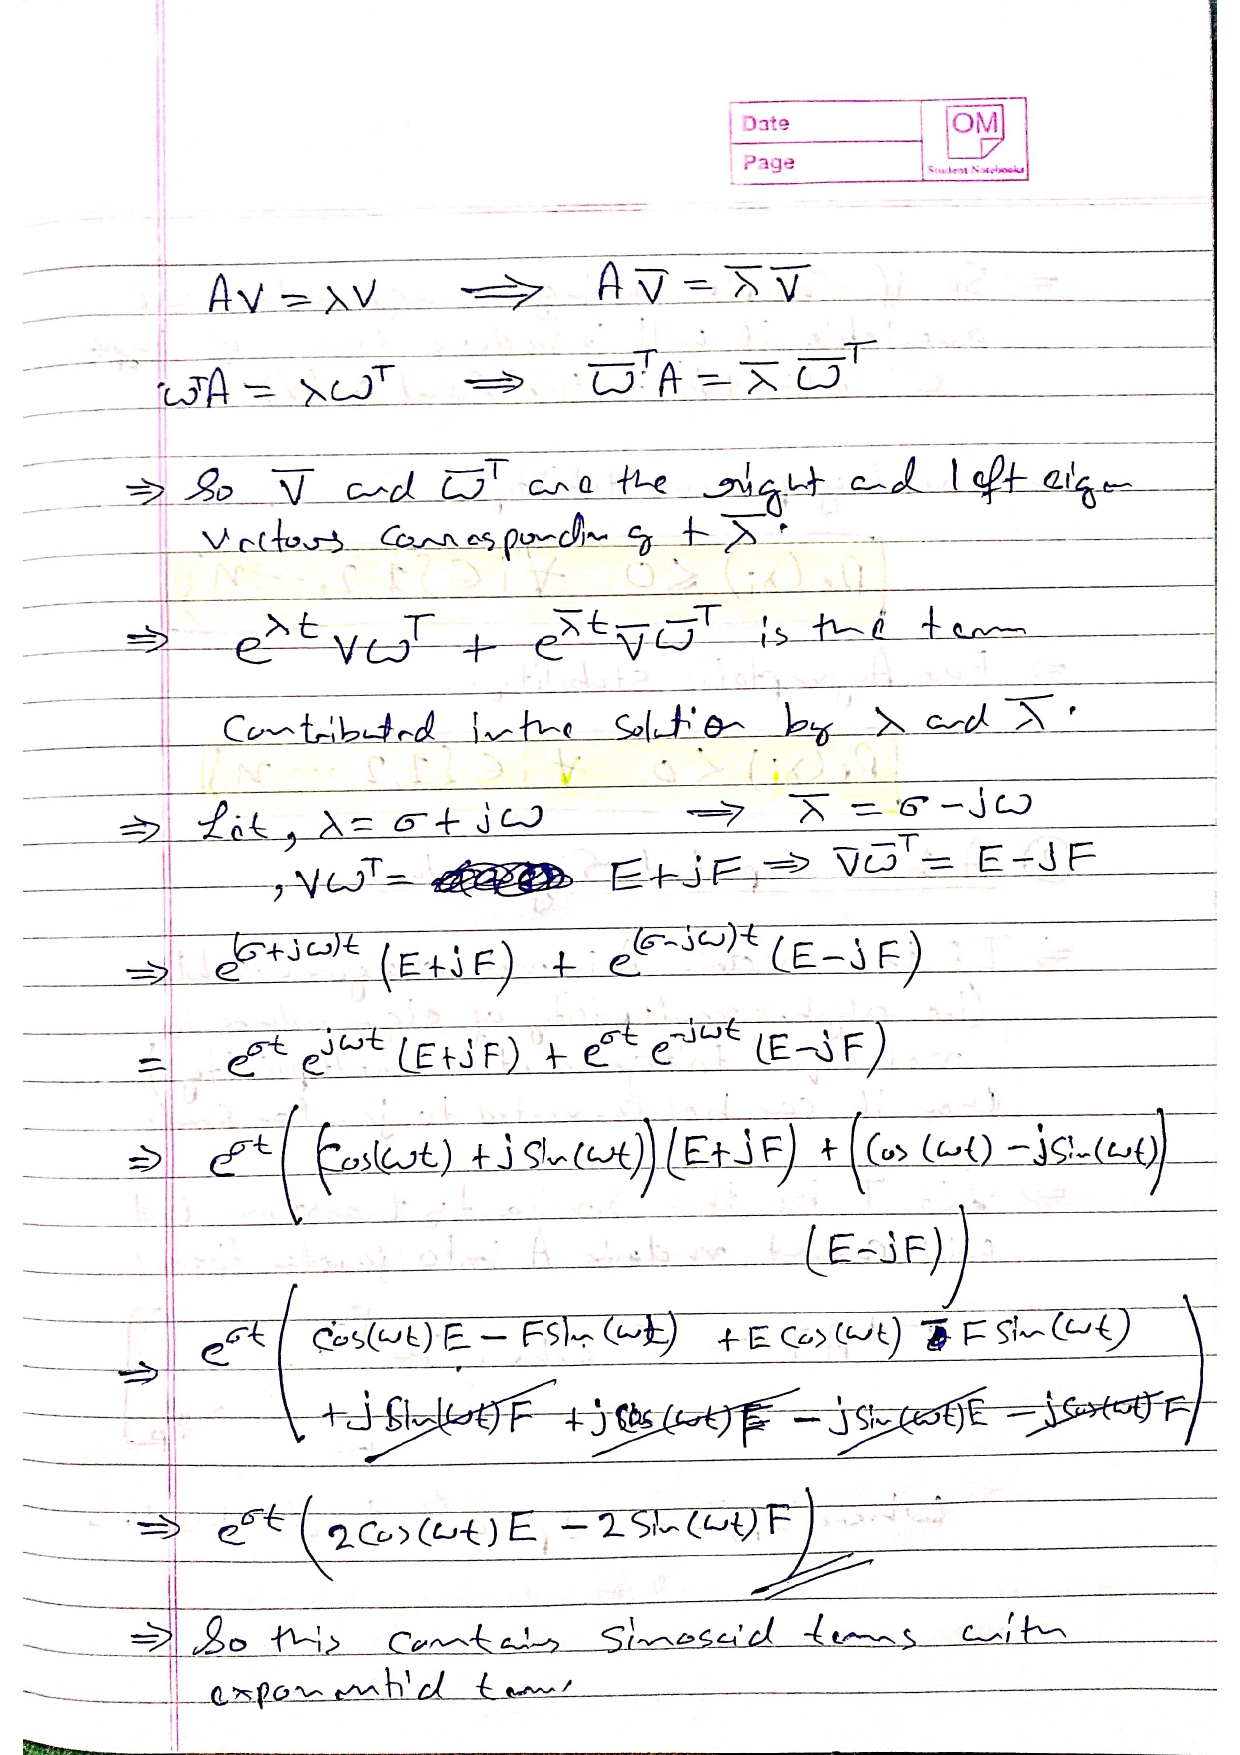 Date
OM
Page
Student Notebooks
AV = λV ⟹ A V̄ = λ̄ V̄
ωᵀA = λωᵀ ⟹ ω̄ᵀA = λ̄ ω̄ᵀ
⇒ So V̄ and ω̄ᵀ are the right and left eigen
vectors corresponding t λ̄.
⇒ e^{λt} Vωᵀ + e^{λ̄t} V̄ω̄ᵀ is the term
contributed in the solution by λ and λ̄.
⇒ Let, λ = σ + jω ⟹ λ̄ = σ - jω
, Vωᵀ = E + jF, ⇒ V̄ω̄ᵀ = E - jF
⇒ e^{(σ+jω)t} (E+jF) + e^{(σ-jω)t} (E-jF)
= e^{σt} e^{jωt} (E+jF) + e^{σt} e^{-jωt} (E-jF)
⇒ e^{σt} ( (Cos(ωt) + j Sin(ωt)) (E+jF) + (Cos(ωt) - jSin(ωt))
(E-jF) )
⇒ e^{σt} ( Cos(ωt) E - F Sin(ωt) + E Cos(ωt) - F Sin(ωt)
+ j Sin(ωt) F + j Cos(ωt) E - j Sin(ωt) E - j Cos(ωt) F )
⇒ e^{σt} ( 2 Cos(ωt) E - 2 Sin(ωt) F )
⇒ So this contains Sinosoid terms with
exponential terms